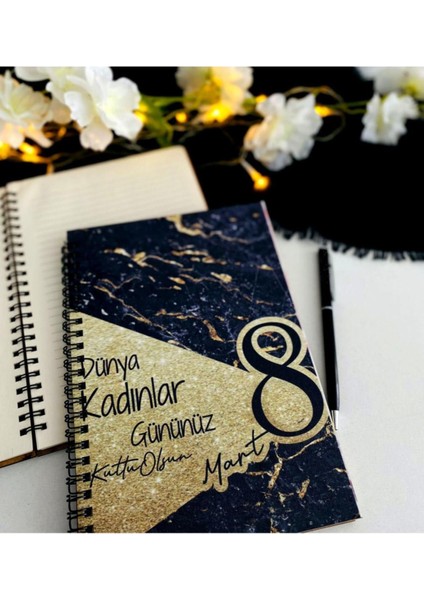 Dünya
Kadınlar
Gününüz
Kutlu Olsun
8
Mart